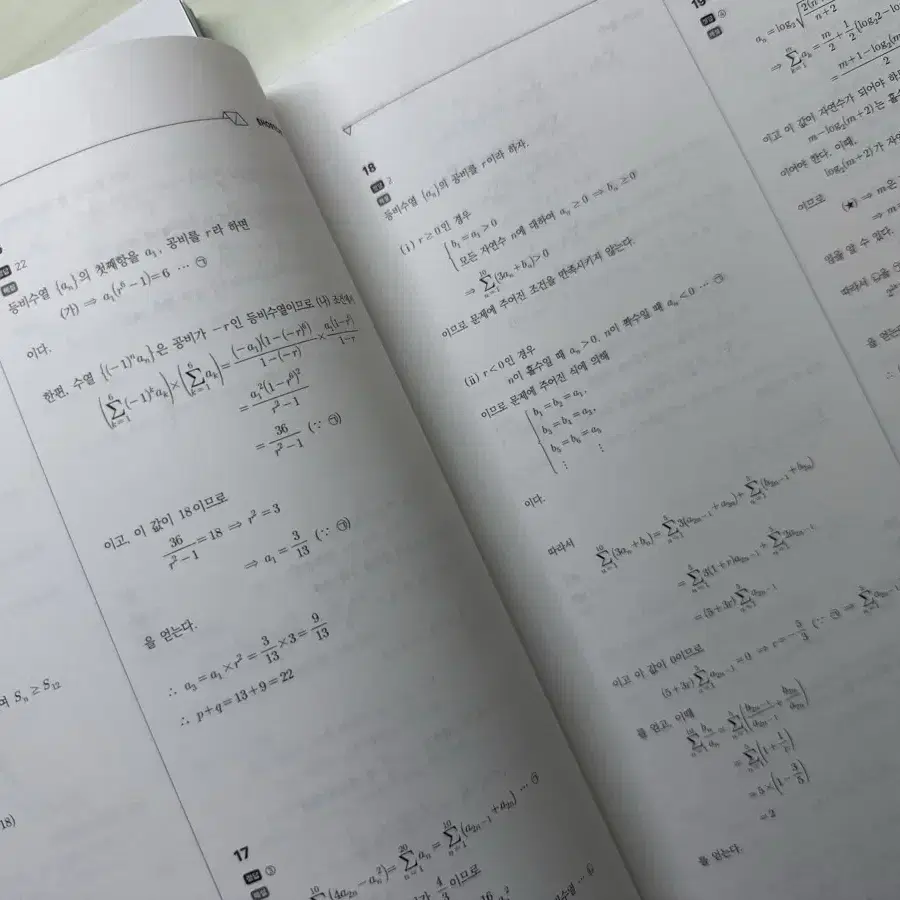 정답 22
해설
등비수열 {aₙ}의 첫째항을 a₁, 공비를 r라 하면
(가) ⇒ a₁(r⁶−1)=6 ⋯ ㉠
이다.
한편, 수열 {(−1)ⁿaₙ}은 공비가 −r인 등비수열이므로 (나) 조건에서
(∑_{k=1}^{6}(−1)ᵏaₖ)×(∑_{k=1}^{6}aₖ)=(−a₁)(1−(−r)⁶)/(1−(−r))×a₁(1−r⁶)/(1−r)
=a₁²(1−r⁶)²/(r²−1)
=36/(r²−1) (∵ ㉠)
이고, 이 값이 18이므로
36/(r²−1)=18 ⇒ r²=3
⇒ a₁=3/13 (∵ ㉠)
을 얻는다.
∴ a₃=a₁×r²=3/13×3=9/13
∴ p+q=13+9=22
Sₙ ≥ S₁₂
18)
17
정답 ③
해설
∑(4a₂ₙ−aₙ²)=∑_{n=1}^{20}aₙ=∑_{n=1}^{10}(a₂ₙ₋₁+a₂ₙ) ⋯ ㉠
4/3이므로
18
정답 2
해설
등비수열 {aₙ}의 공비를 r이라 하자.
(ⅰ) r≥0인 경우
b₁=a₁>0
모든 자연수 n에 대하여 aₙ≥0 ⇒ bₙ≥0
⇒ ∑_{n=1}^{10}(3aₙ+bₙ)>0
이므로 문제에 주어진 조건을 만족시키지 않는다.
(ⅱ) r<0인 경우
n이 홀수일 때 aₙ>0, n이 짝수일 때 aₙ<0 ⋯ ㉠
이므로 문제에 주어진 식에 의해
b₁=b₂=a₁,
b₃=b₄=a₃,
b₅=b₆=a₅
⋮ ⋮
이다.
따라서
∑_{n=1}^{10}(3aₙ+bₙ)=∑_{n=1}^{5}3(a₂ₙ₋₁+a₂ₙ)+∑_{n=1}^{5}(b₂ₙ₋₁+b₂ₙ)
=∑_{n=1}^{5}3(1+r)a₂ₙ₋₁+∑_{n=1}^{5}2a₂ₙ₋₁
=(5+3r)∑_{n=1}^{5}a₂ₙ₋₁
이고 이 값이 0이므로
(5+3r)∑_{n=1}^{5}a₂ₙ₋₁=0 ⇒ r=−5/3 (∵ ㉠ ⇒ ∑_{n=1}^{5}a₂ₙ₋₁
을 얻고, 이때
∑_{n=1}^{10}bₙ/aₙ=∑_{n=1}^{5}(b₂ₙ₋₁/a₂ₙ₋₁+b₂ₙ/a₂ₙ)
=∑_{n=1}^{5}(1+1/r)
=5×(1−3/5)
=2
을 얻는다.
19
정답 ④
해설
⇒ ∑_{k=1}^{m}aₖ=m/2+1/2(log₂2−lo
=m+1−log₂(m
이고 이 값이 자연수가 되어야 하므
m−log₂(m+2)는 홀수
이어야 한다. 이때,
log₂(m+2)가 자연
이므로
(★) ⇒ m은
⇒ m
임을 알 수 있다.
을 얻는